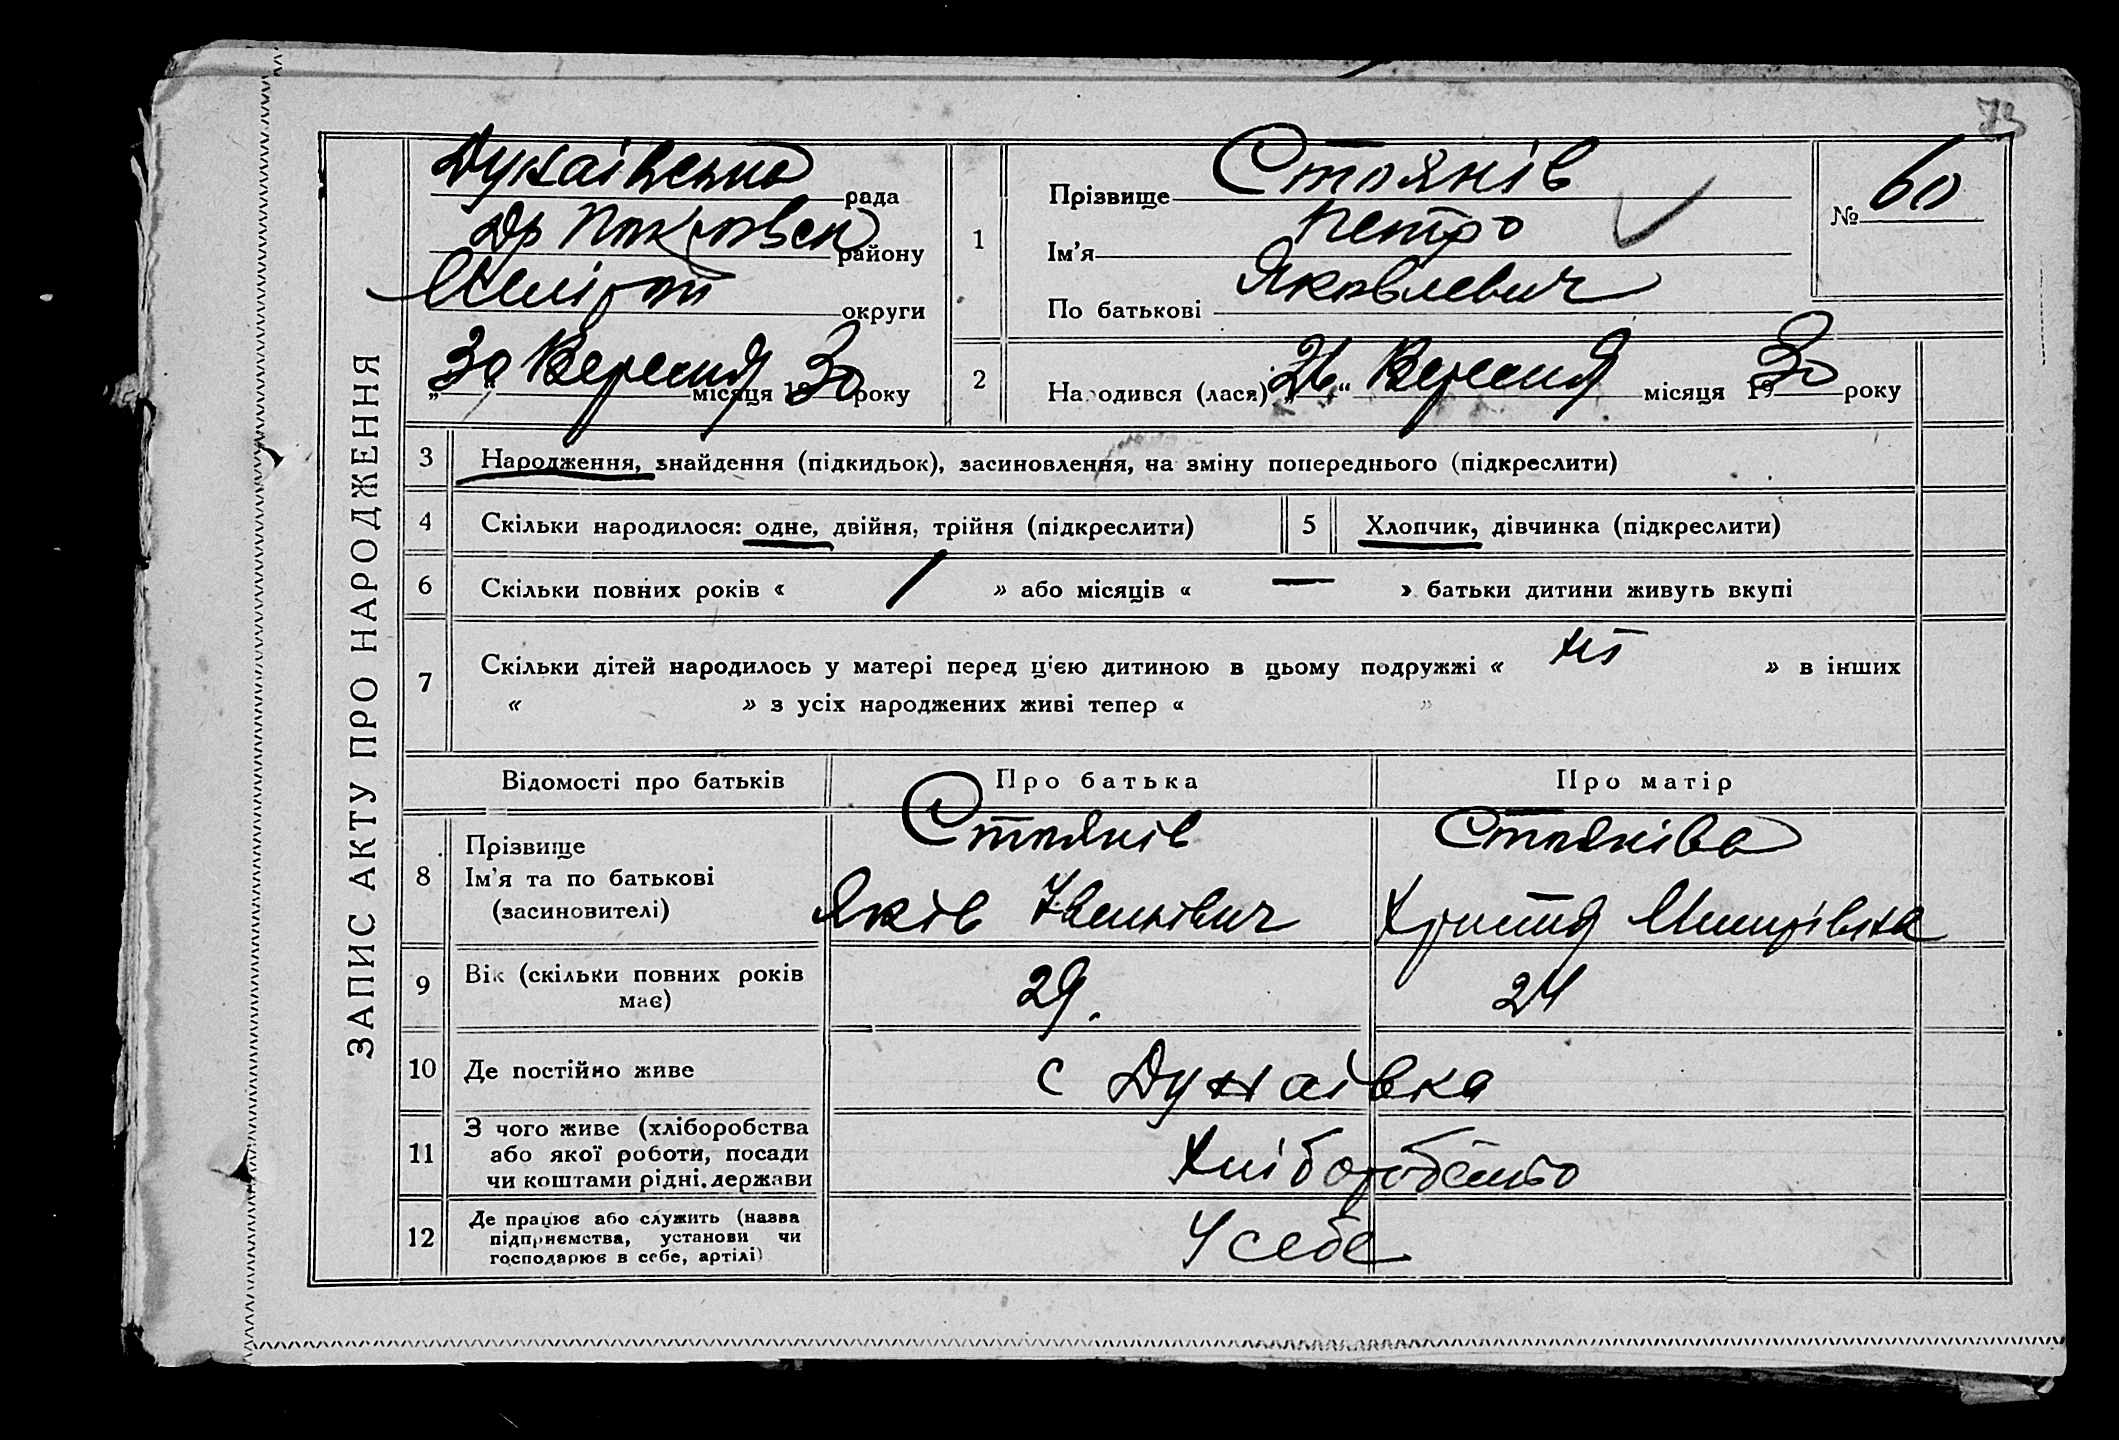 73
ЗАПИС АКТУ ПРО НАРОДЖЕННЯ
Дунаівська рада
Др Покровськ району
Меліт округи
„30“ Вересня місяця 1930 року
1
Прізвище Стоянів
Ім'я Петро
По батькові Яковлевич
№ 60
2
Народився (лася) „26“ Вересня місяця 1930 року
3 Народження, знайдення (підкидьок), засиновлення, на зміну попереднього (підкреслити)
4 Скільки народилося: одне, двійня, трійня (підкреслити) 5 Хлопчик, дівчинка (підкреслити)
6 Скільки повних років « / » або місяців « — » батьки дитини живуть вкупі
7 Скільки дітей народилось у матері перед ц'єю дитиною в цьому подружжі « ні » в інших
« » з усіх народжених живі тепер « »
Відомості про батьків Про батька Про матір
8 Прізвище Стоянів Стояніва
Ім'я та по батькові Яків Іванівич Христя
(засиновителі)
9 Вік (скільки повних років має) 29. 24
10 Де постійно живе с Дунаівка
11 З чого живе (хліборобства
або якої роботи, посади
чи коштами рідні, держави Хліборобство
12 Де працює або служить (назва
підприємства, установи чи
господарює в себе, артілі) У себе